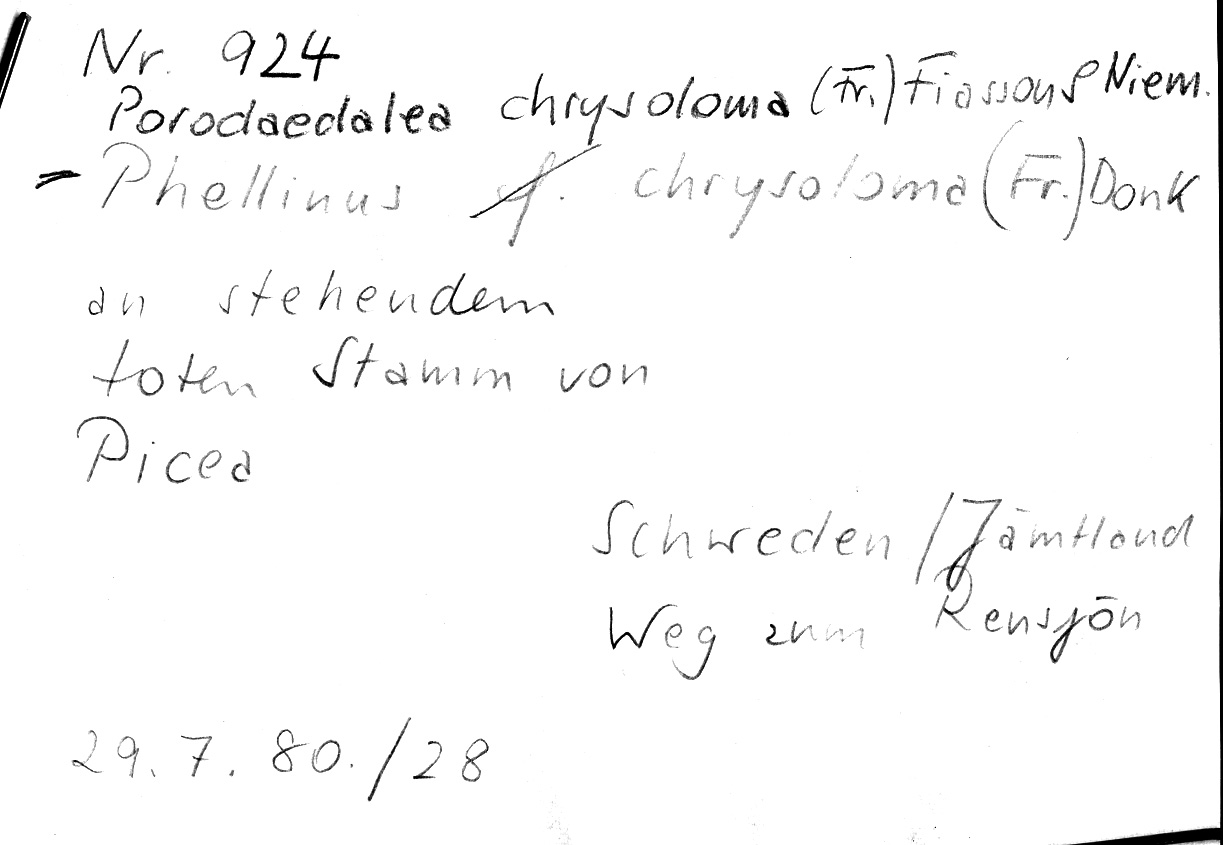 Nr. 924
Porodaedalea chrysoloma (Fr.) Fiasson & Niem.
= Phellinus cf. chrysoloma (Fr.) Donk
an stehendem
toten Stamm von
Picea
Schweden / Jämtland
Weg zum Rensjön
29.7.80./28